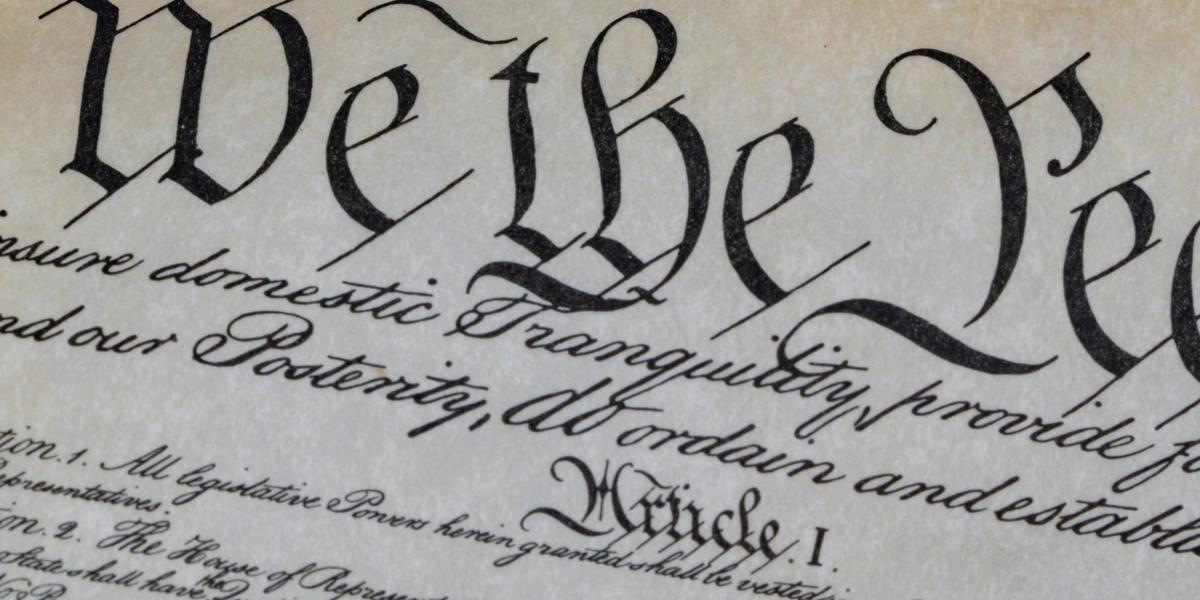 We the Peo
nsure domestic Tranquility, provide fo
nd our Posterity, do ordain and establis
Article. I.
tion. 1. All legislative Powers herein granted shall be vested in
epresentatives.
ion. 2. The House of Represent
State shall have the